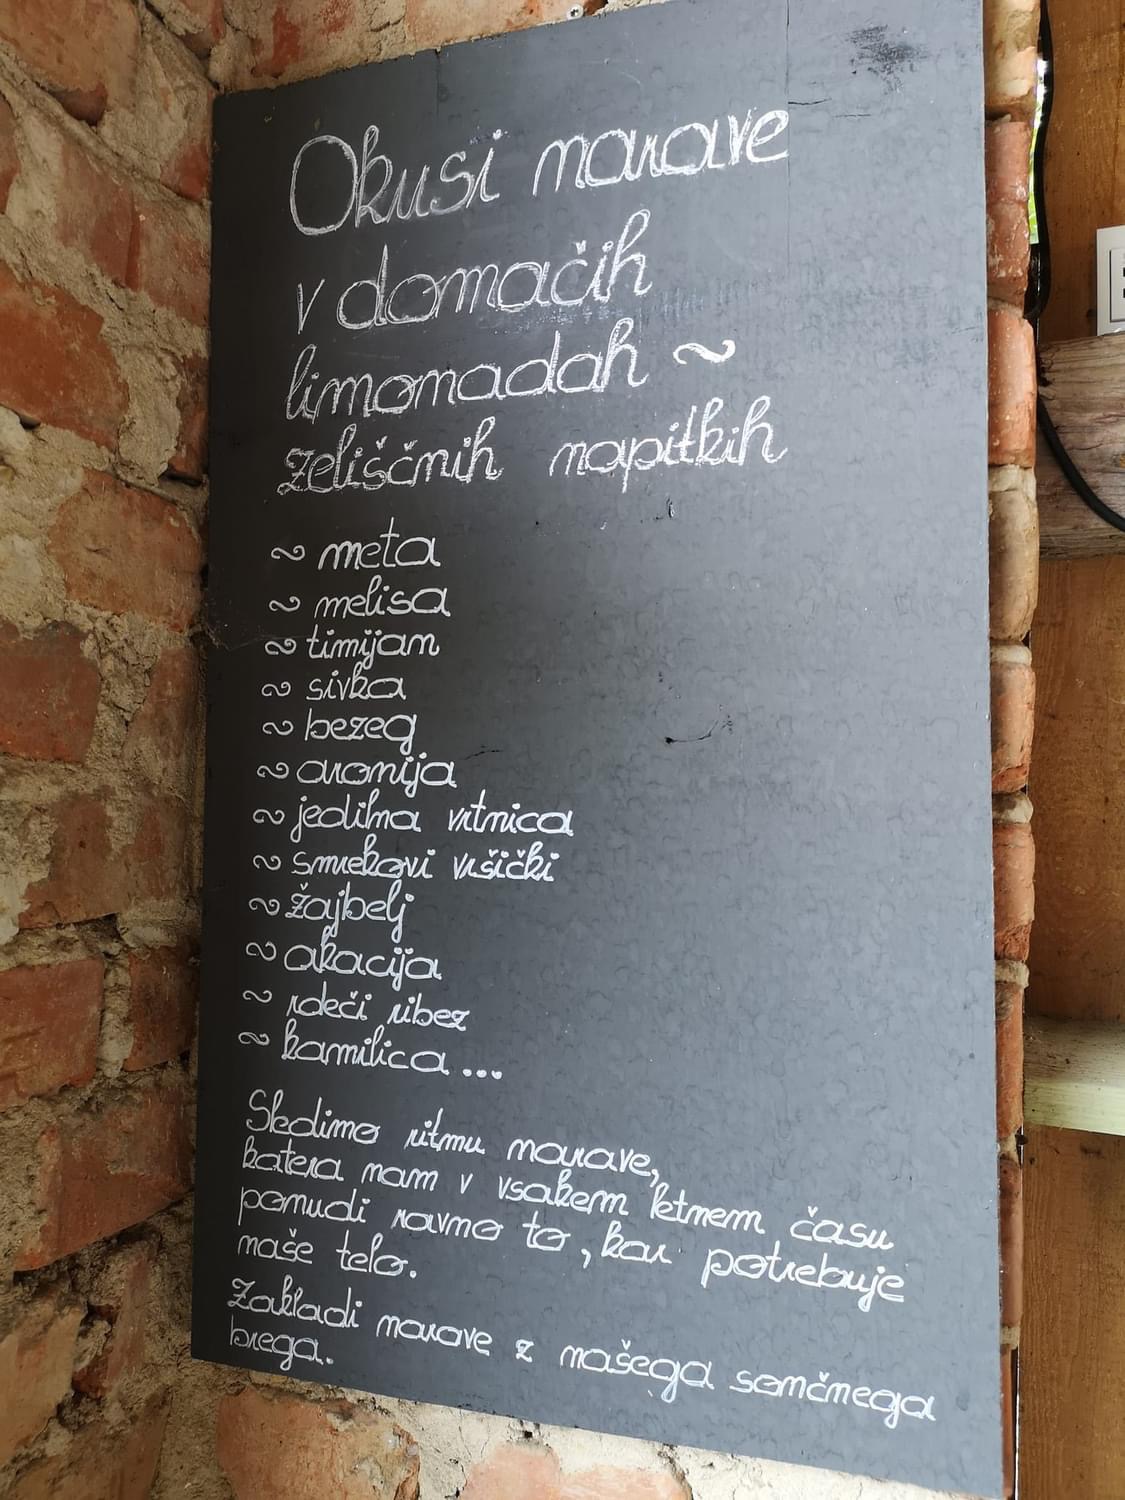 Okusi narave
v domačih
limonadah ~
zeliščnih napitkih
~ meta
~ melisa
~ timijan
~ sivka
~ bezeg
~ aronija
~ jedilna vrtnica
~ smrekovi vršički
~ žajbelj
~ akacija
~ rdeči ribez
~ kamilica...
Sledimo ritmu narave,
katera nam v vsakem letnem času
ponudi ravno to, kar potrebuje
naše telo.
Zakladi narave z našega sončnega
brega.